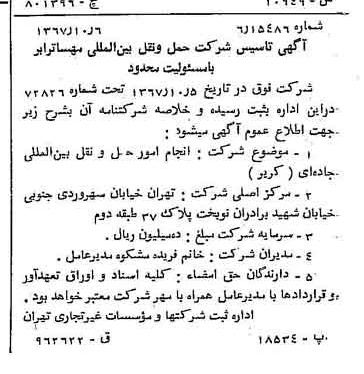 ش - ۱۰۹۴۹ ج - ۸۰۱۳۹۶
شماره ۶٫۱۵۴۸۶ ۱۳۶۷٫۱۰٫۶
آگهی تاسیس شرکت حمل ونقل بین‌المللی مهساترابر
بامسئولیت محدود
شرکت فوق در تاریخ ۱۳۶۷٫۱۰٫۵ تحت شماره ۷۲۸۲۶
دراین اداره بثبت رسیده و خلاصه شرکتنامه آن بشرح زیر
جهت اطلاع عموم آگهی میشود:
۱ - موضوع شرکت : انجام امور حمل و نقل بین‌المللی
جاده‌ای ( کریر )
۲ - مرکز اصلی شرکت : تهران خیابان سهروردی جنوبی
خیابان شهید برادران نوبخت پلاک ۳۷ طبقه دوم
۳ - سرمایه شرکت مبلغ : ده‌میلیون ریال .
۴ - مدیران شرکت : خانم فریده مشکوه مدیرعامل .
۵ - دارندگان حق امضاء : کلیه اسناد و اوراق تعهدآور
و قراردادها با مدیرعامل همراه با مهر شرکت معتبر خواهد بود .
اداره ثبت شرکتها و مؤسسات غیرتجاری تهران
پ - ۱۸۵۳۴ ق - ۹۶۲۶۲۲